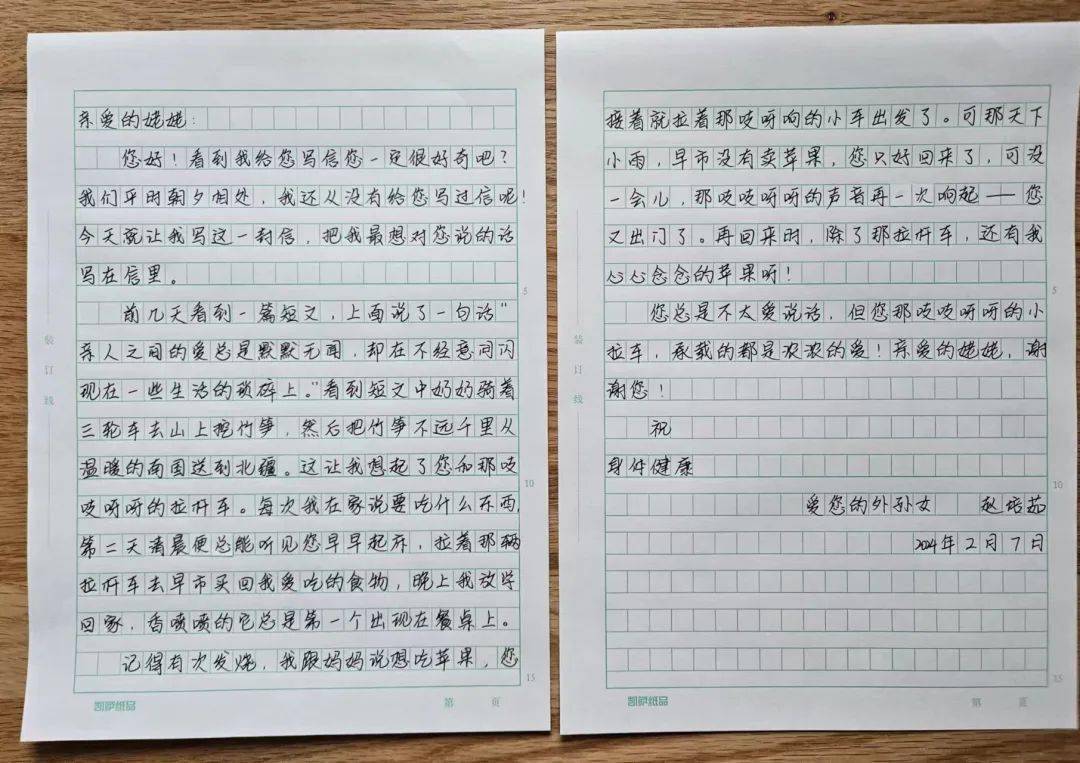 亲爱的姥姥：
您好！看到我给您写信您一定很好奇吧？
我们平时朝夕相处，我还从没有给您写过信呢！
今天就让我写这一封信，把我最想对您说的话
写在信里。
前几天看到一篇短文，上面说了一句话“
亲人之间的爱总是默默无闻，却在不经意间闪
现在一些生活的琐碎上。”看到短文中奶奶骑着
三轮车去山上挖竹笋，然后把竹笋不远千里从
温暖的南国送到北疆。这让我想起了您和那吱
吱呀呀的拉杆车。每次我在家说要吃什么东西，
第二天清晨便总能听见您早早起床，拉着那辆
拉杆车去早市买回我爱吃的食物，晚上我放学
回家，香喷喷的它总是第一个出现在餐桌上。
记得有次发烧，我跟妈妈说想吃苹果，您
装
订
线
5
10
15
凯萨纸品
第 页
接着就拉着那吱呀响的小车出发了。可那天下
小雨，早市没有卖苹果，您只好回来了，可没
一会儿，那吱吱呀呀的声音再一次响起——您
又出门了。再回来时，除了那拉杆车，还有我
心心念念的苹果呀！
您总是不太爱说话，但您那吱吱呀呀的小
拉车，承载的都是浓浓的爱！亲爱的姥姥，谢
谢您！
祝
身体健康
爱您的外孙女 赵培茹
2024年2月7日
装
订
线
5
10
15
凯萨纸品
第 页